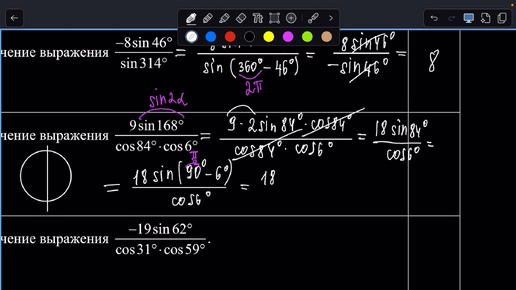 чение выражения −8 sin 46° / sin 314° = / sin (360° − 46°) = 8 sin 46° / − sin 46° = 8
2π
sin 2α
чение выражения 9 sin 168° / cos 84° · cos 6° = 9 · 2 sin 84° · cos 84° / cos 84° · cos 6° = 18 sin 84° / cos 6° =
= 18 sin (90° − 6°) / cos 6° = 18
чение выражения −19 sin 62° / cos 31° · cos 59°.